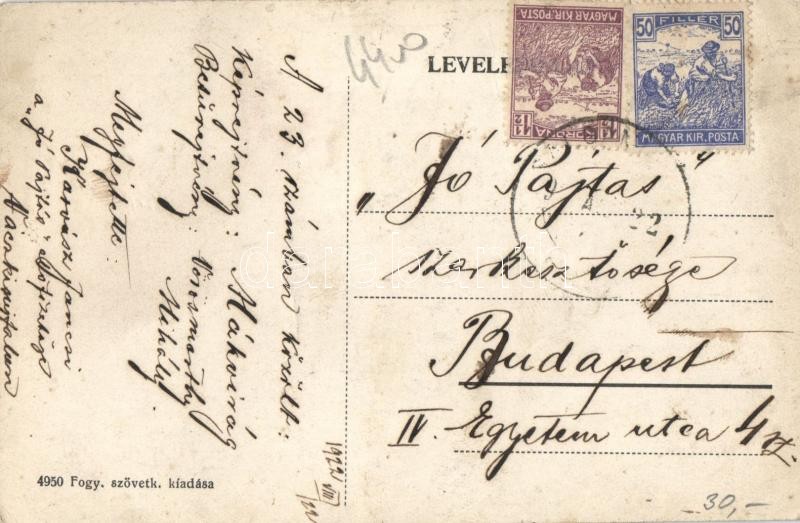 A 23. számban közölt:
Képrejtvény: Mákvirág
Betűrejtvény: Vörösmarthy
Mihály
Megfejtette:
Karvász Jancsi
a "Jó Pajtás" előfizetője
1922 VIII
4950 Fogy. szövetk. kiadása
4400
LEVELE
1½ KORONA
MAGYAR KIR. POSTA
50 FILLER
MAGYAR KIR. POSTA
„Jó Pajtás"
szerkesztősége
Budapest
IV. Egyetem utca 4 sz.
30,-
darabanth.com